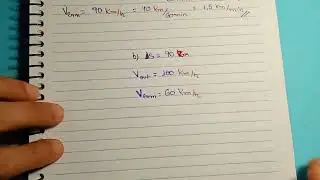 Vcam = 90 Km/h = 90 Km/60min = 1,5 Km/min/
b) ΔS = 90 Km
Vaut = 100 Km/h
Vcam = 60 Km/h